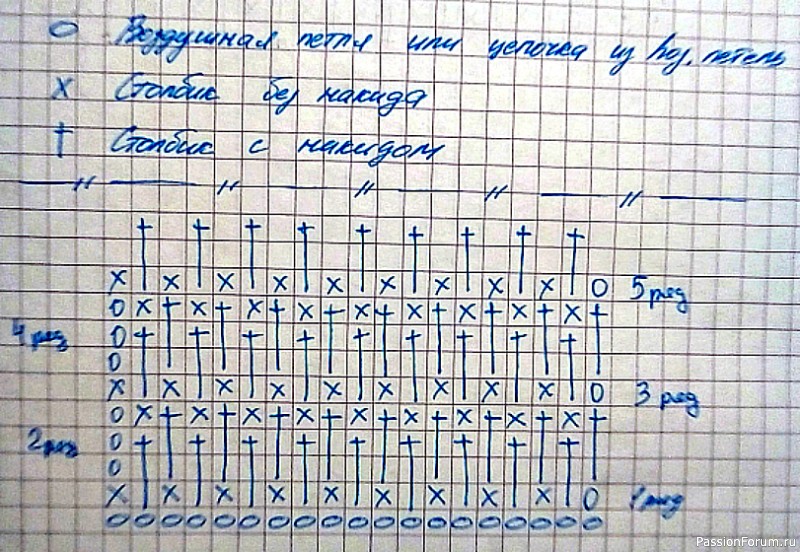 O Воздушная петля или цепочка из воз. петель
X Столбик без накида
† Столбик с накидом
5 ряд
4 ряд
3 ряд
2 ряд
1 ряд
PassionForum.ru